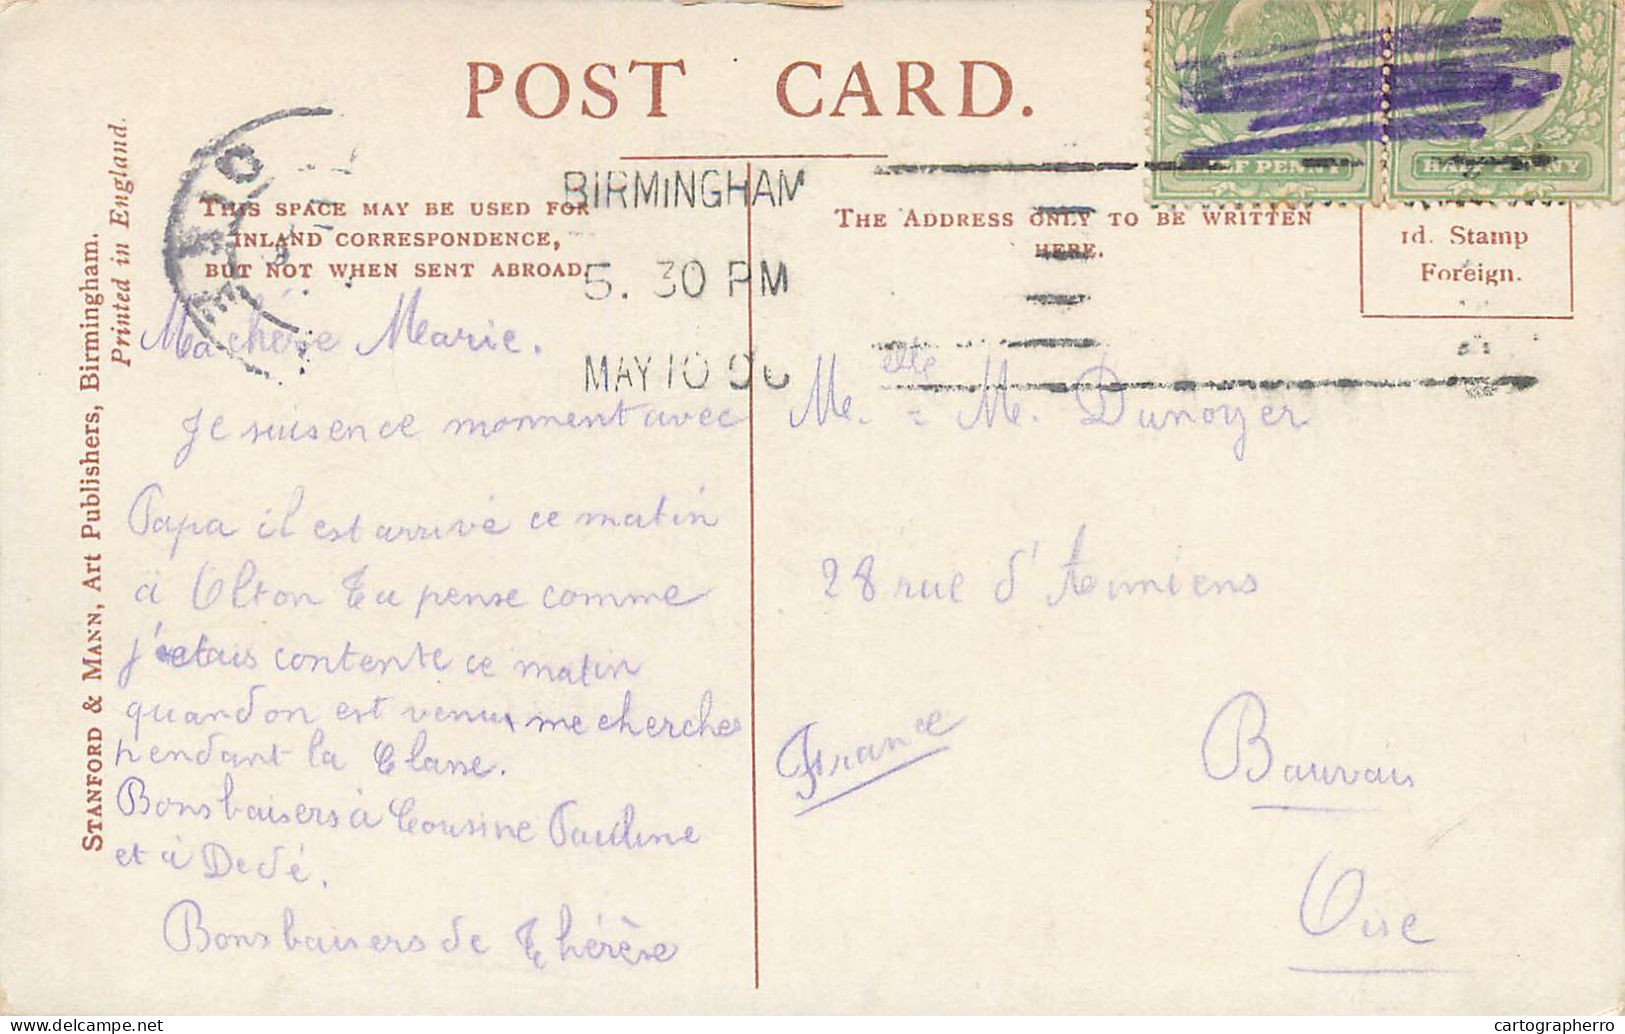 POST CARD.
BIRMINGHAM
5. 30 PM
MAY 10
THIS SPACE MAY BE USED FOR
INLAND CORRESPONDENCE,
BUT NOT WHEN SENT ABROAD.
THE ADDRESS ONLY TO BE WRITTEN
HERE.
HALF PENNY
HALF PENNY
1d. Stamp
Foreign.
STANFORD & MANN, Art Publishers, Birmingham.
Printed in England.
Ma chére Marie.
Je suis en ce momment avec
Papa il est arrivé ce matin
à Olton Tu pense comme
j'etais contente ce matin
quand on est venu me chercher
pendant la Classe.
Bons baisers à Cousine Pauline
et à Dedé.
Bons baisers de Thérèse
Melle M. Dunoyer
28 rue d'Amiens
Bauvais
Oise
France
cartographerro